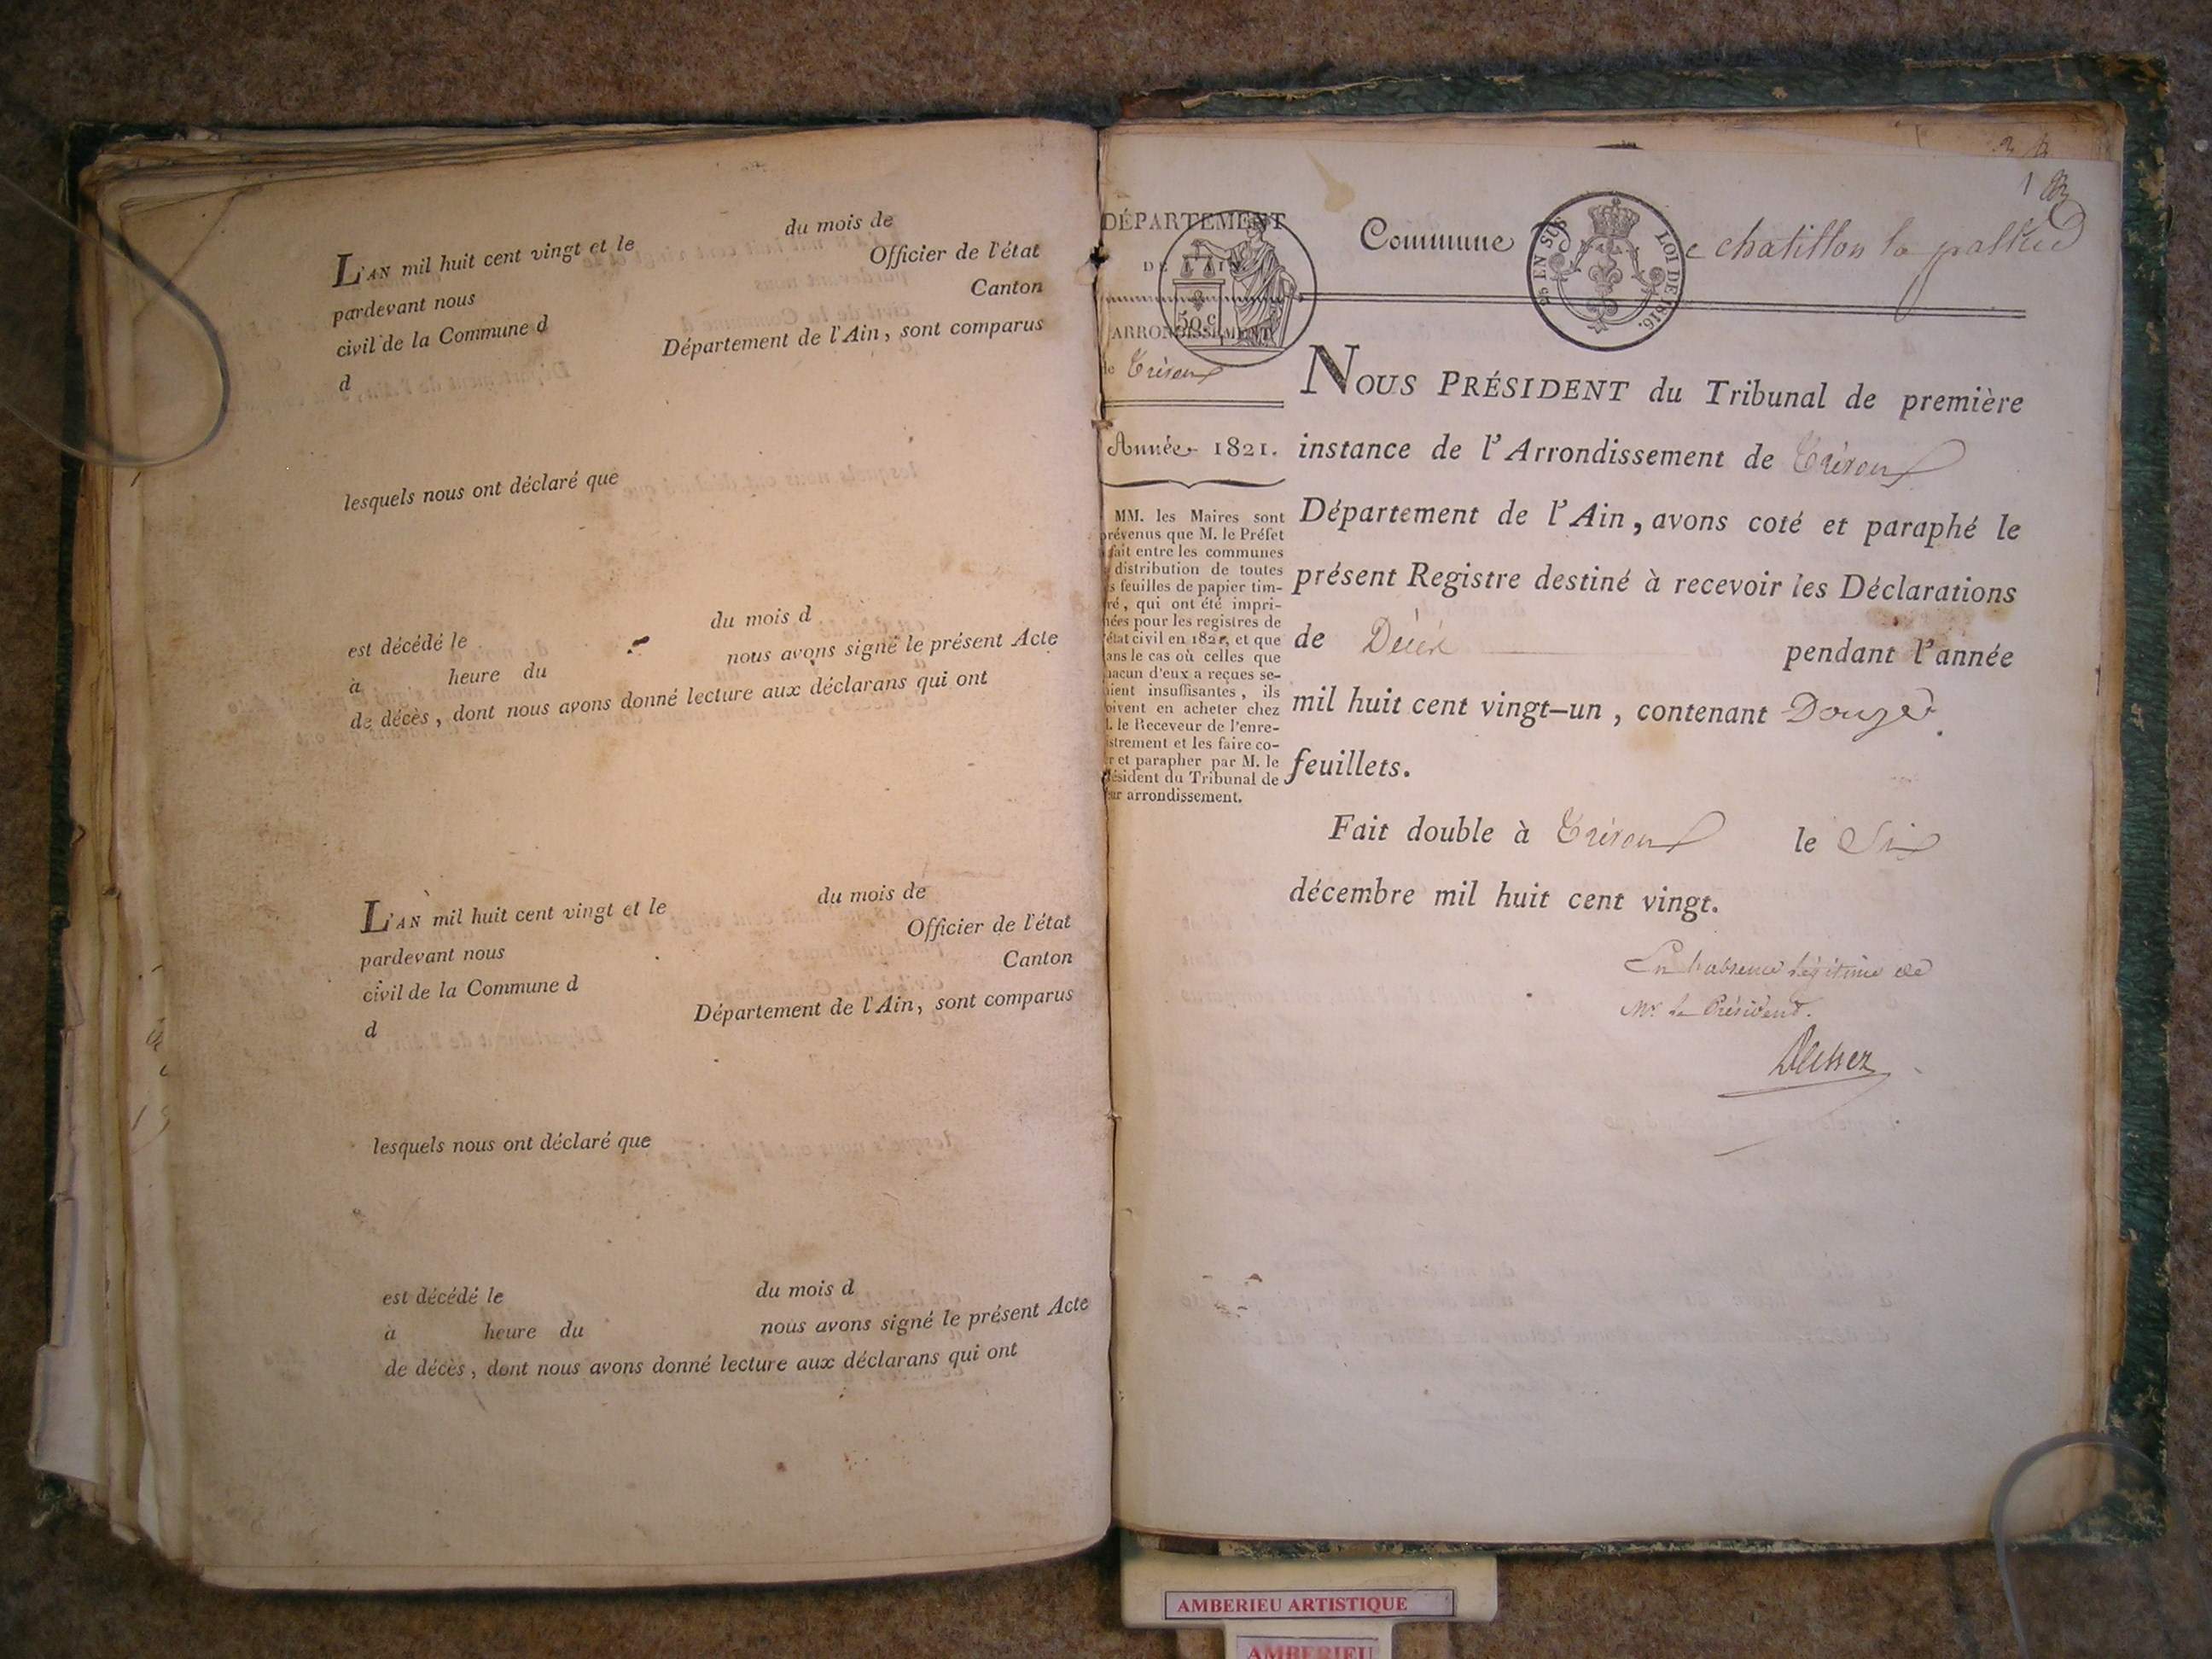 L'AN mil huit cent vingt et le du mois de
pardevant nous Officier de l'état
civil de la Commune d Canton
d Département de l'Ain, sont comparus
lesquels nous ont déclaré que
est décédé le du mois d
à heure du nous avons signé le présent Acte
de décès, dont nous avons donné lecture aux déclarans qui ont
L'AN mil huit cent vingt et le du mois de
pardevant nous Officier de l'état
civil de la Commune d Canton
d Département de l'Ain, sont comparus
lesquels nous ont déclaré que
est décédé le du mois d
à heure du nous avons signé le présent Acte
de décès, dont nous avons donné lecture aux déclarans qui ont
1
DÉPARTEMENT
DE L'AIN
50 c
ARRONDISSEMENT
de Trévoux
Année 1821.
MM. les Maires sont
prévenus que M. le Préfet
fait entre les communes
distribution de toutes
s feuilles de papier tim-
ré, qui ont été impri-
mées pour les registres de
l'état civil en 1821, et que
dans le cas où celles que
hacun d'eux a reçues se-
aient insuffisantes, ils
oivent en acheter chez
M. le Receveur de l'enre-
istrement et les faire co-
er et parapher par M. le
résident du Tribunal de
eur arrondissement.
Commune de chatillon la pallud
EN SUS LOI DE 1816.
NOUS PRÉSIDENT du Tribunal de première
instance de l'Arrondissement de Trévoux
Département de l'Ain, avons coté et paraphé le
présent Registre destiné à recevoir les Déclarations
de Décès pendant l'année
mil huit cent vingt-un, contenant Douze
feuillets.
Fait double à Trévoux le Six
décembre mil huit cent vingt.
En l'absence légitime de
Mr. le Président.
AMBERIEU ARTISTIQUE
AMBERIEU